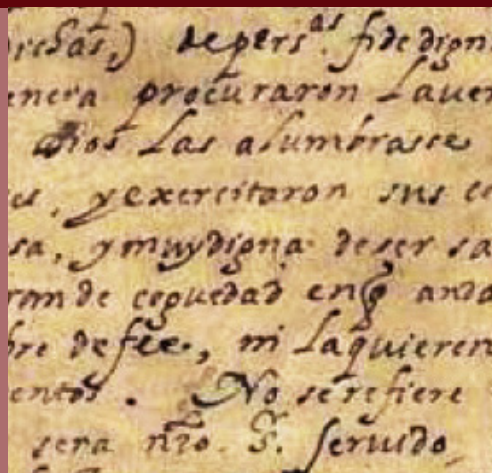 rechas,) de pers.as fidedign
enera procuraron la ver
Dios las alumbrasse
es, y exercitaron sus e
sa, y muy digna de ser sa
ran de ceguedad en q̃ anda
bre de fee, ni la quieren
entos. No se refiere
sera nr̃o. S. seruido